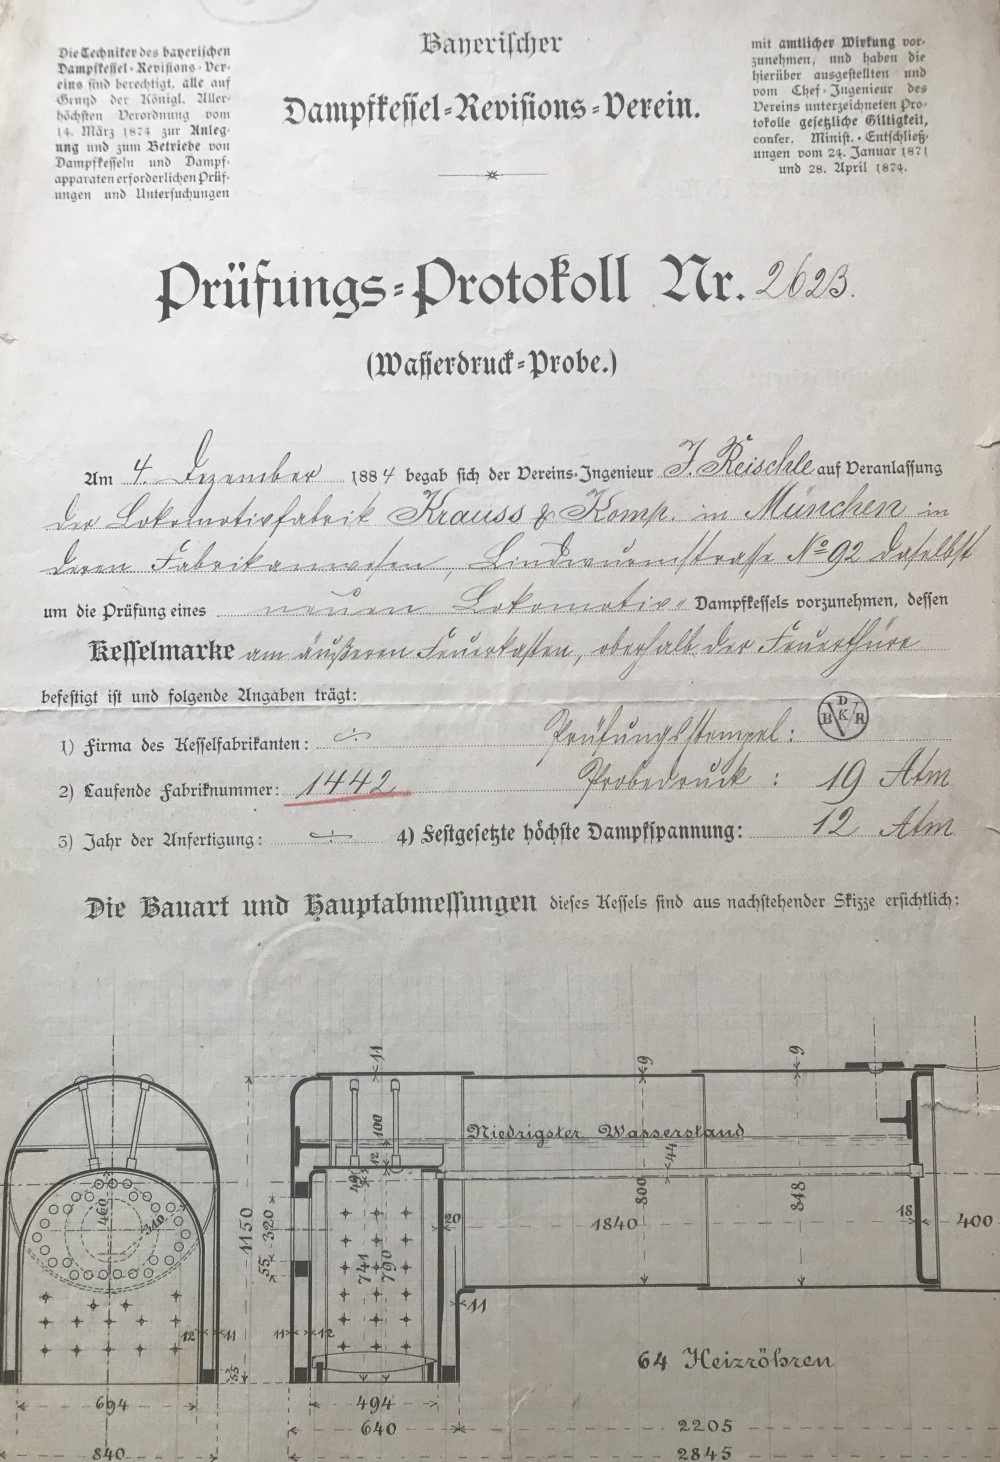 Die Techniker des bayerischen
Dampfkessel-Revisions-Ver-
eins sind berechtigt, alle auf
Grund der Königl. Aller-
höchsten Verordnung vom
14. März 1874 zur Anleg-
ung und zum Betriebe von
Dampfkesseln und Dampf-
apparaten erforderlichen Prüf-
ungen und Untersuchungen
Bayerischer
Dampfkessel-Revisions-Verein.
mit amtlicher Wirkung vor-
zunehmen, und haben die
hierüber ausgestellten und
vom Chef-Ingenieur des
Vereins unterzeichneten Pro-
tokolle gesetzliche Giltigkeit,
confer. Minist.-Entschließ-
ungen vom 24. Januar 1871
und 28. April 1874.
Prüfungs-Protokoll Nr. 2623.
(Wasserdruck-Probe.)
Am 4. Dezember 1884 begab sich der Vereins-Ingenieur J. Reischle auf Veranlassung
der Lokomotivfabrik Krauss & Komp. in München in
deren Fabrikanwesen, Lindwurmstrasse No 92 daselbst
um die Prüfung eines neuen Lokomotiv- Dampfkessels vorzunehmen, dessen
Kesselmarke am äußeren Feuerkasten, oberhalb der Feuerthüre
befestigt ist und folgende Angaben trägt:
1) Firma des Kesselfabrikanten: ÷ Prüfungsstempel: D B K R V
2) Laufende Fabriknummer: 1442 Probedruck: 19 Atm
3) Jahr der Anfertigung: ÷ 4) Festgesetzte höchste Dampfspannung: 12 Atm
Die Bauart und Hauptabmessungen dieses Kessels sind aus nachstehender Skizze ersichtlich:
11
9
9
100
12
Niedrigster Wasserstand
44
49
460
340
1150
320
55
741
790
20
1840
800
848
18
400
11
12
11
11
12
55
64 Heizröhren
694
494
640
2205
840
2845